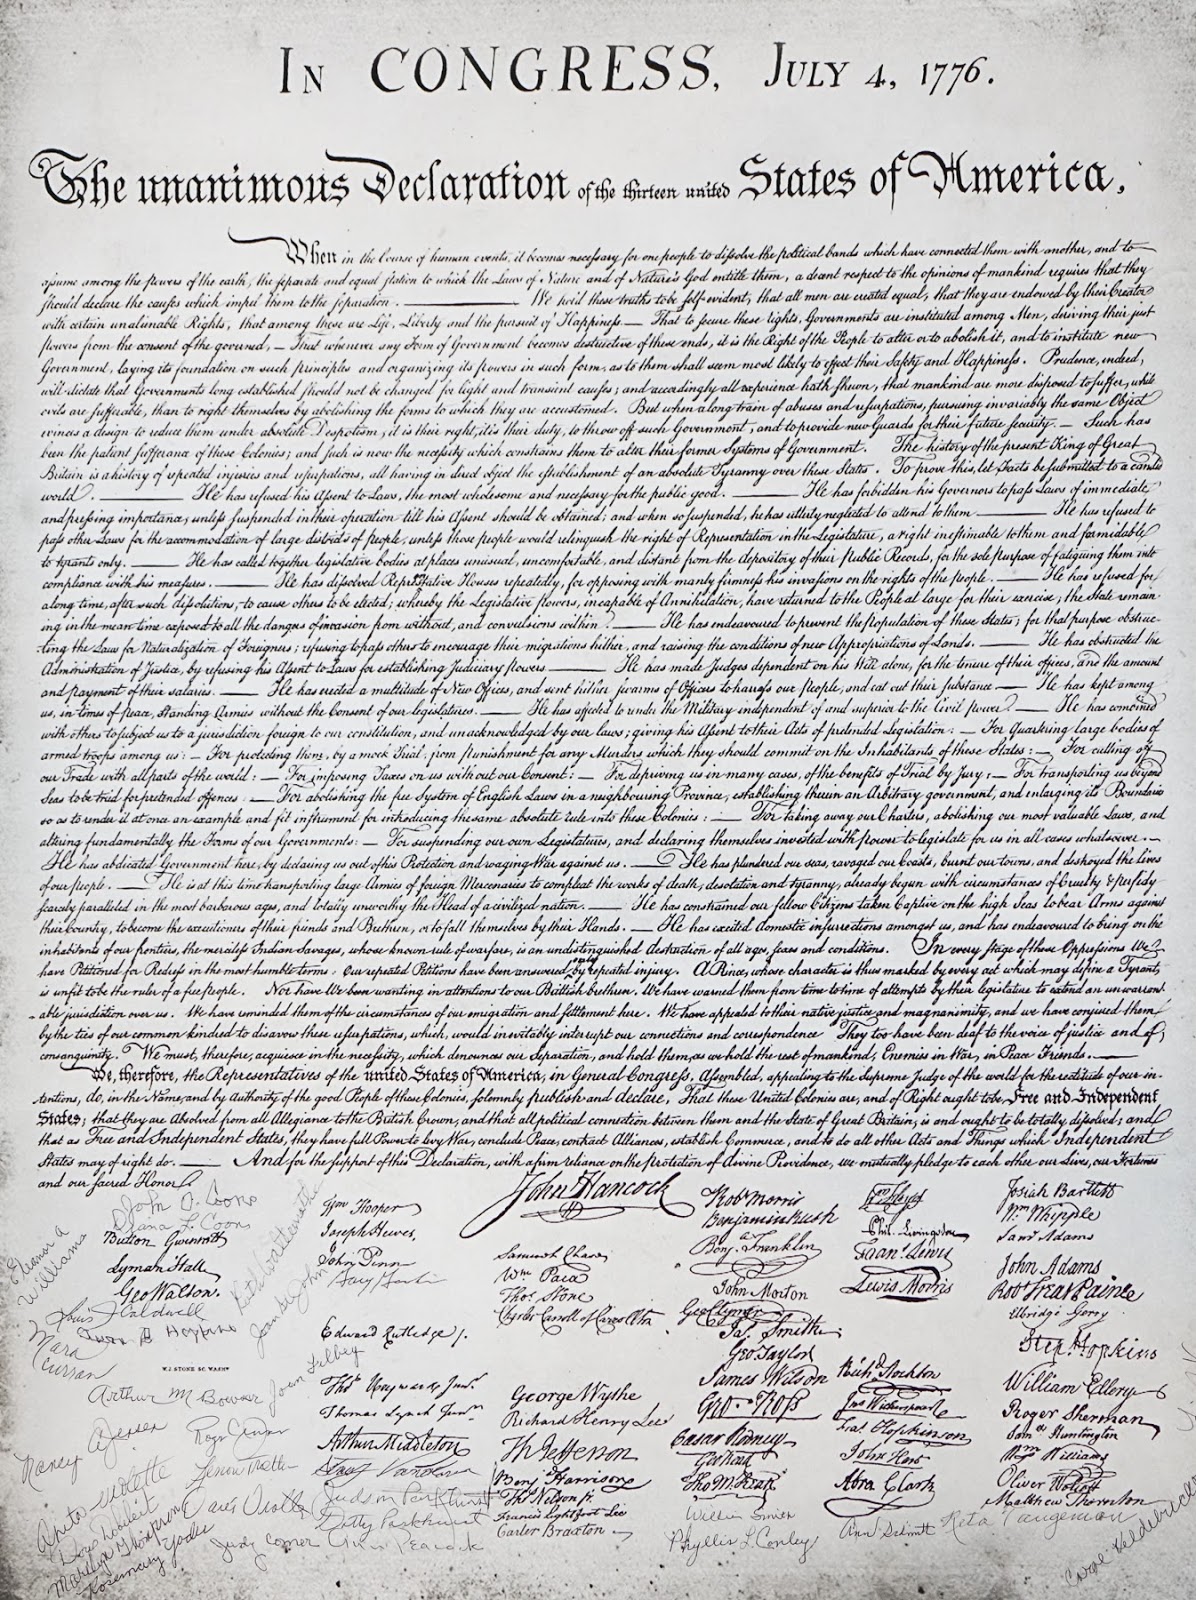 IN CONGRESS, JULY 4, 1776.
The unanimous Declaration of the thirteen united States of America,
When in the Course of human events, it becomes necessary for one people to dissolve the political bands which have connected them with another, and to
assume among the powers of the earth, the separate and equal station to which the Laws of Nature and of Nature's God entitle them, a decent respect to the opinions of mankind requires that they
should declare the causes which impel them to the separation. ——— We hold these truths to be self-evident, that all men are created equal, that they are endowed by their Creator
with certain unalienable Rights, that among these are Life, Liberty and the pursuit of Happiness. — That to secure these rights, Governments are instituted among Men, deriving their just
powers from the consent of the governed, — That whenever any Form of Government becomes destructive of these ends, it is the Right of the People to alter or to abolish it, and to institute new
Government, laying its foundation on such principles and organizing its powers in such form, as to them shall seem most likely to effect their Safety and Happiness. Prudence, indeed,
will dictate that Governments long established should not be changed for light and transient causes; and accordingly all experience hath shewn, that mankind are more disposed to suffer, while
evils are sufferable, than to right themselves by abolishing the forms to which they are accustomed. But when a long train of abuses and usurpations, pursuing invariably the same Object
evinces a design to reduce them under absolute Despotism, it is their right, it is their duty, to throw off such Government, and to provide new Guards for their future security. — Such has
been the patient sufferance of these Colonies; and such is now the necessity which constrains them to alter their former Systems of Government. The history of the present King of Great
Britain is a history of repeated injuries and usurpations, all having in direct object the establishment of an absolute Tyranny over these States. To prove this, let Facts be submitted to a candid
world. ——— He has refused his Assent to Laws, the most wholesome and necessary for the public good. ——— He has forbidden his Governors to pass Laws of immediate
and pressing importance, unless suspended in their operation till his Assent should be obtained; and when so suspended, he has utterly neglected to attend to them. ——— He has refused to
pass other Laws for the accommodation of large districts of people, unless those people would relinquish the right of Representation in the Legislature, a right inestimable to them and formidable
to tyrants only. ——— He has called together legislative bodies at places unusual, uncomfortable, and distant from the depository of their Public Records, for the sole purpose of fatiguing them into
compliance with his measures. ——— He has dissolved Representative Houses repeatedly, for opposing with manly firmness his invasions on the rights of the people. ——— He has refused for
a long time, after such dissolutions, to cause others to be elected; whereby the Legislative powers, incapable of Annihilation, have returned to the People at large for their exercise; the State remain-
ing in the mean time exposed to all the dangers of invasion from without, and convulsions within. ——— He has endeavoured to prevent the population of these States; for that purpose obstruc-
ting the Laws for Naturalization of Foreigners; refusing to pass others to encourage their migrations hither, and raising the conditions of new Appropriations of Lands. ——— He has obstructed the
Administration of Justice, by refusing his Assent to Laws for establishing Judiciary powers. ——— He has made Judges dependent on his Will alone, for the tenure of their offices, and the amount
and payment of their salaries. ——— He has erected a multitude of New Offices, and sent hither swarms of Officers to harrass our people, and eat out their substance. ——— He has kept among
us, in times of peace, Standing Armies without the Consent of our legislatures. ——— He has affected to render the Military independent of and superior to the Civil power. ——— He has combined
with others to subject us to a jurisdiction foreign to our constitution, and unacknowledged by our laws; giving his Assent to their Acts of pretended Legislation: — For Quartering large bodies of
armed troops among us: — For protecting them, by a mock Trial, from punishment for any Murders which they should commit on the Inhabitants of these States: — For cutting off
our Trade with all parts of the world: — For imposing Taxes on us without our Consent: — For depriving us in many cases, of the benefits of Trial by Jury: — For transporting us beyond
Seas to be tried for pretended offences: — For abolishing the free System of English Laws in a neighbouring Province, establishing therein an Arbitrary government, and enlarging its Boundaries
so as to render it at once an example and fit instrument for introducing the same absolute rule into these Colonies: — For taking away our Charters, abolishing our most valuable Laws, and
altering fundamentally the Forms of our Governments: — For suspending our own Legislatures, and declaring themselves invested with power to legislate for us in all cases whatsoever. —
He has abdicated Government here, by declaring us out of his Protection and waging War against us. — He has plundered our seas, ravaged our Coasts, burnt our towns, and destroyed the lives
of our people. — He is at this time transporting large Armies of foreign Mercenaries to compleat the works of death, desolation and tyranny, already begun with circumstances of Cruelty & perfidy
scarcely paralleled in the most barbarous ages, and totally unworthy the Head of a civilized nation. — He has constrained our fellow Citizens taken Captive on the high Seas to bear Arms against
their Country, to become the executioners of their friends and Brethren, or to fall themselves by their Hands. — He has excited domestic insurrections amongst us, and has endeavoured to bring on the
inhabitants of our frontiers, the merciless Indian Savages, whose known rule of warfare, is an undistinguished destruction of all ages, sexes and conditions. In every stage of these Oppressions We
have Petitioned for Redress in the most humble terms: Our repeated Petitions have been answered only by repeated injury. A Prince, whose character is thus marked by every act which may define a Tyrant,
is unfit to be the ruler of a free people. Nor have We been wanting in attentions to our Brittish brethren. We have warned them from time to time of attempts by their legislature to extend an unwarrant-
able jurisdiction over us. We have reminded them of the circumstances of our emigration and settlement here. We have appealed to their native justice and magnanimity, and we have conjured them
by the ties of our common kindred to disavow these usurpations, which, would inevitably interrupt our connections and correspondence They too have been deaf to the voice of justice and of
consanguinity. We must, therefore, acquiesce in the necessity, which denounces our Separation, and hold them, as we hold the rest of mankind, Enemies in War, in Peace Friends. ———
We, therefore, the Representatives of the united States of America, in General Congress, Assembled, appealing to the Supreme Judge of the world for the rectitude of our in-
tentions, do, in the Name, and by Authority of the good People of these Colonies, solemnly publish and declare, That these United Colonies are, and of Right ought to be Free and Independent
States; that they are Absolved from all Allegiance to the British Crown, and that all political connection between them and the State of Great Britain, is and ought to be totally dissolved; and
that as Free and Independent States, they have full Power to levy War, conclude Peace, contract Alliances, establish Commerce, and to do all other Acts and Things which Independent
States may of right do. ——— And for the support of this Declaration, with a firm reliance on the protection of divine Providence, we mutually pledge to each other our Lives, our Fortunes
and our sacred Honor.
Eleanor A Williams
John A Coons
Diana L. Coons
Button Gwinnett
Lyman Hall
Geo Walton.
Caldwell
Hopkins
Nara Curran
W.J. STONE SC. WASHN
Arthur M Bowar
Nancy
Roger
Anita
Marilyn Thompson
Rosemary
Judy Comer
Ann Peacock
Wm Hooper
Joseph Hewes,
John Penn
Gary
Edward Rutledge /.
Thos Heyward Junr.
Thomas Lynch Junr.
Arthur Middleton
Judson Parkhurst
Betty Parkhurst
John Hancock
Samuel Chase
Wm Paca
Thos Stone
Charles Carroll of Carrollton
George Wythe
Richard Henry Lee
Th Jefferson
Benj Harrison
Thos Nelson jr.
Francis Lightfoot Lee
Carter Braxton
Robt Morris
Benjamin Rush
Benj. Franklin
John Morton
Geo Clymer
Jas. Smith
Geo Taylor
James Wilson
Geo. Ross
Caesar Rodney
Geo Read
Tho M:Kean
William Smith
Phyllis L. Conley
Wm Floyd
Phil. Livingston
Frans. Lewis
Lewis Morris
Richd Stockton
Jno Witherspoon
Fras. Hopkinson
John Hart
Abra Clark
Ann Schmitt
Josiah Bartlett
Wm Whipple
Saml Adams
John Adams
Robt Treat Paine
Elbridge Gerry
Step. Hopkins
William Ellery
Roger Sherman
Saml Huntington
Wm Williams
Oliver Wolcott
Matthew Thornton
Rita Tangeman
Carol